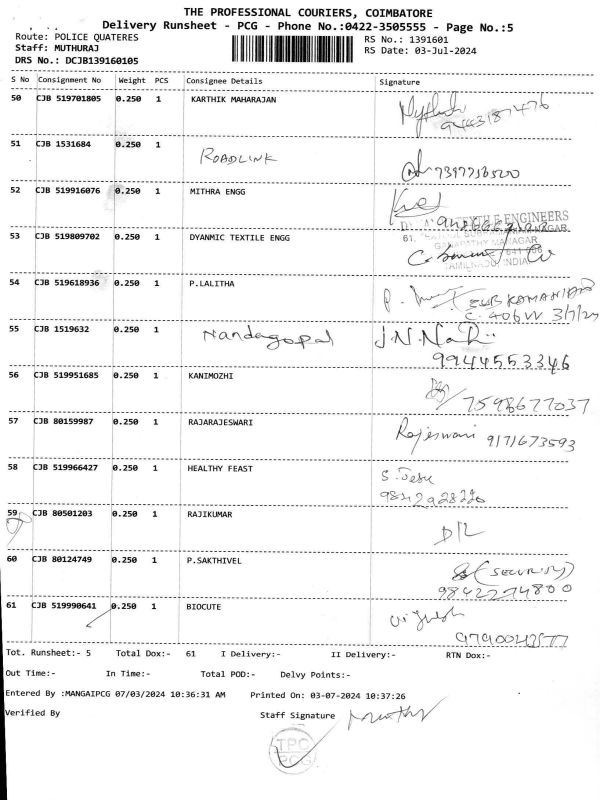 THE PROFESSIONAL COURIERS, COIMBATORE
Delivery Runsheet - PCG - Phone No.:0422-3505555 - Page No.:5
Route: POLICE QUATERES RS No.: 1391601
Staff: MUTHURAJ RS Date: 03-Jul-2024
DRS No.: DCJB139160105
S No Consignment No Weight PCS Consignee Details Signature
50 CJB 519701805 0.250 1 KARTHIK MAHARAJAN
9443187476
51 CJB 1531684 0.250 1 ROADLINK
52 CJB 519916076 0.250 1 MITHRA ENGG
TEXTILE ENGINEERS
53 CJB 519809702 0.250 1 DYANMIC TEXTILE ENGG 61,
54 CJB 519618936 0.250 1 P.LALITHA
55 CJB 1519632 0.250 1 Nandagopal
9944553346
56 CJB 519951685 0.250 1 KANIMOZHI
7598677037
57 CJB 80159987 0.250 1 RAJARAJESWARI Rajeswari 9171673593
58 CJB 519966427 0.250 1 HEALTHY FEAST
59 CJB 80501203 0.250 1 RAJIKUMAR D/L
60 CJB 80124749 0.250 1 P.SAKTHIVEL (SECURITY)
9842274800
61 CJB 519990641 0.250 1 BIOCUTE Vignesh
Tot. Runsheet:- 5 Total Dox:- 61 I Delivery:- II Delivery:- RTN Dox:-
Out Time:- In Time:- Total POD:- Delvy Points:-
Entered By :MANGAIPCG 07/03/2024 10:36:31 AM Printed On: 03-07-2024 10:37:26
Verified By Staff Signature
TPC
PCG